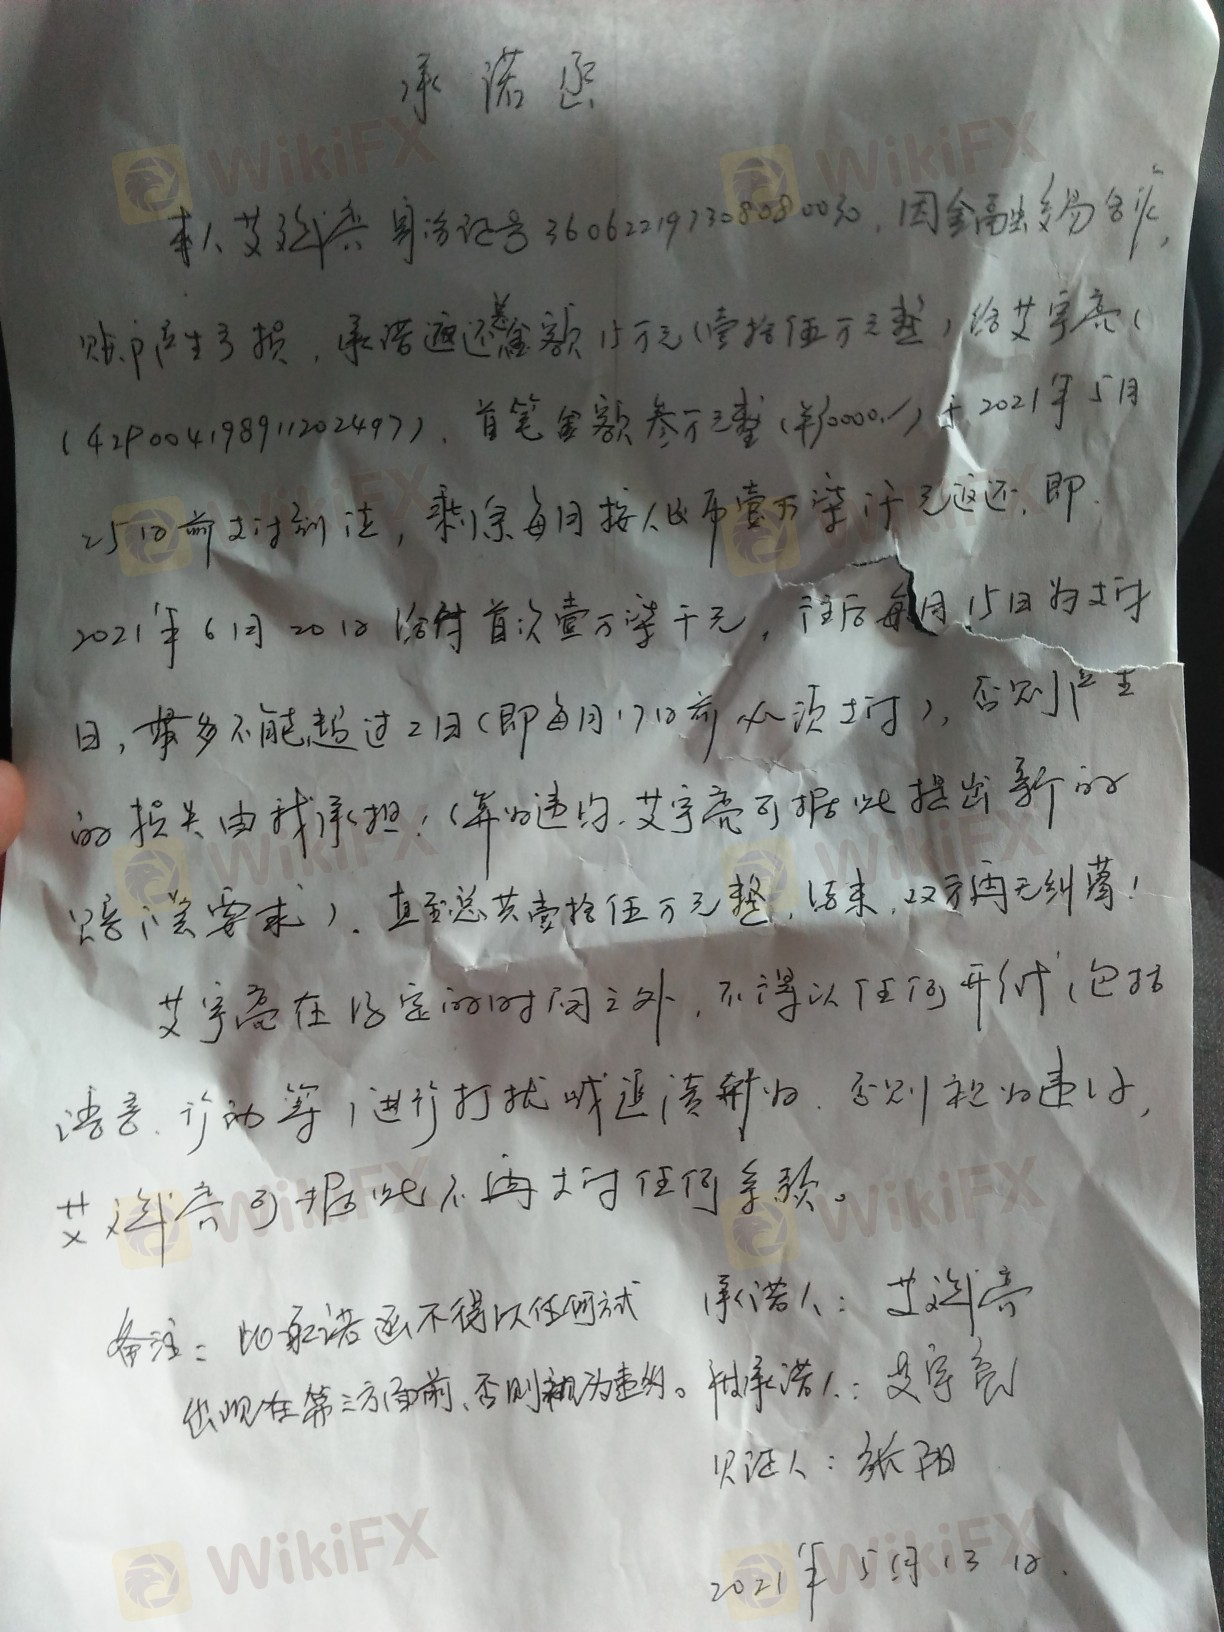 承诺函
本人艾 身份证号 ，因金融交易合作，
账户产生亏损，承诺返还总金额15万元(壹拾伍万元整)给艾宇亮(
(429004198911202497)，首笔金额叁万元整 于2021年5月
25日前支付到位，剩余每月按人民币壹万柒仟元返还，即
2021年6月20日给付首次壹万柒千元，往后每月15日为支付
日，最多不能超过2日(即每月17日前必须支付)，否则产生
的损失由我承担！(算为违约，艾宇亮可据此提出新的
赔偿要求)，直至总共壹拾伍万元整，结束，双方再无纠葛！
艾宇亮在约定的时间之外，不得以任何形式(包括
语言、行动等)进行打扰或追债行为，否则视为违约，
艾 可据此不再支付任何余款。
承诺人：艾
备注：此承诺函不得以任何方式
出现在第三方面前，否则视为违约。
被承诺人：艾宇亮
见证人：张阳
2021年5月13日.
WikiFX
WikiFX
WikiFX
WikiFX
WikiFX
WikiFX
WikiFX
WikiFX
WikiFX
WikiFX